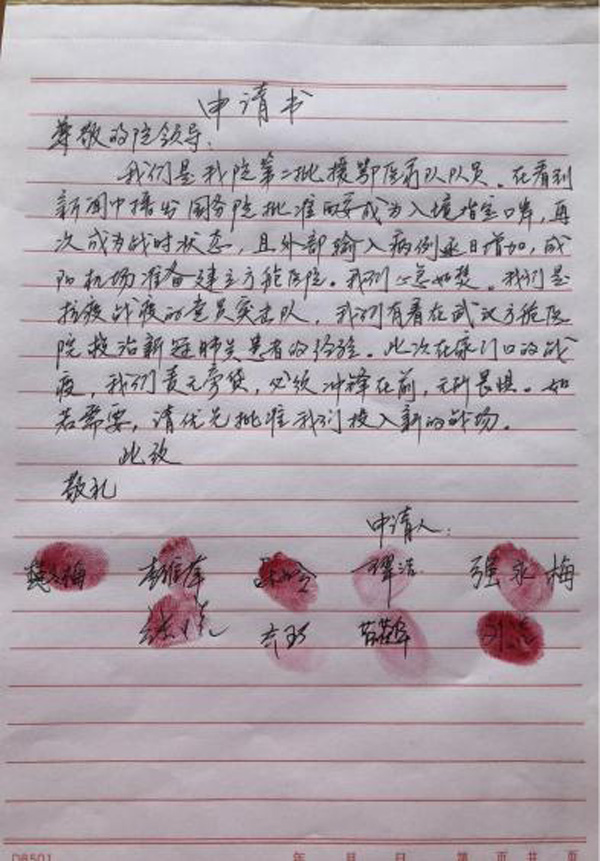 申请书
尊敬的院领导:
我们是我院第二批援鄂医疗队队员。在看到
新闻中播出国务院批准咸阳成为入境指定口岸,再
次成为战时状态,且外部输入病例逐日增加,咸
阳机场准备建立方舱医院。我们心急如焚。我们是
抗疫战疫的党员突击队,我们有着在武汉方舱医
院救治新冠肺炎患者的经验。此次在家门口的战
疫,我们责无旁贷,必须冲锋在前,无所畏惧。如
若需要,请优先批准我们投入新的战场。
此致
敬礼
申请人:
梅 谭洁 强永梅
D8501 年 月 日 第 页 共 页